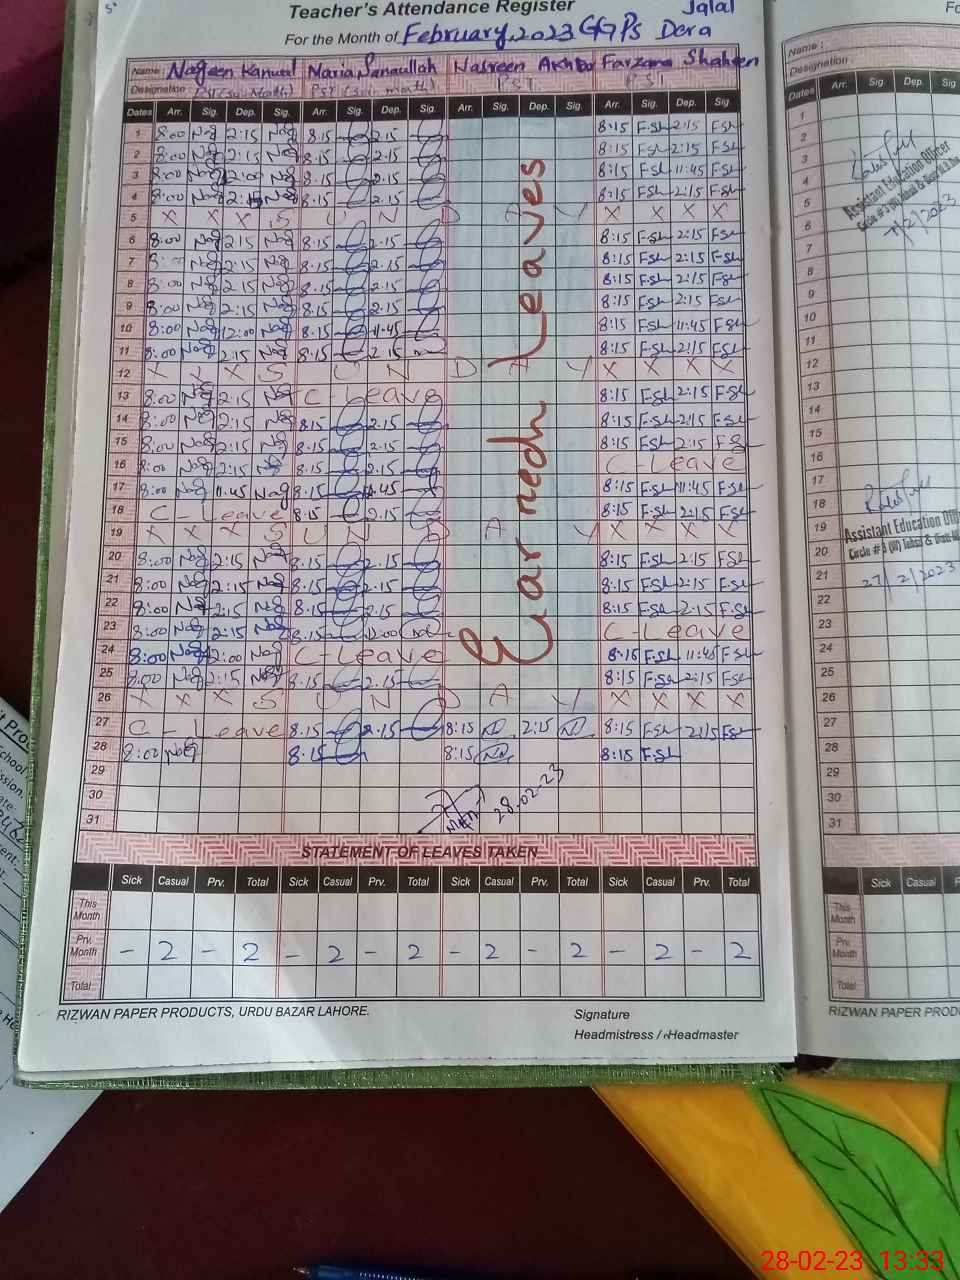 Teacher's Attendance Register Jalal
For the Month of February 2023 GGPS Dera
Name: Nageen Kanwal Maria Sanaullah Nasreen Akhtar Farzana Shaheen
Designation: PST PST PST PST
Dates Arr. Sig. Dep. Sig. Arr. Sig. Dep. Sig. Arr. Sig. Dep. Sig. Arr. Sig. Dep. Sig.
1 8:00 Nag 2:15 Nag 8.15 2.15 8:15 F.Sh 2:15 FSh
2 8:00 Nag 2:15 Nag 8.15 2.15 8:15 FSh 2:15 FSh
3 8:00 Nag 12:00 Nag 8.15 2.15 8:15 FSh 11:45 FSh
4 8:00 Nag 2:15 Nag 8.15 2.15 8:15 FSh 2:15 FSh
5 X X X S U N D A Y X X X X
6 8:00 Nag 2:15 Nag 8.15 2.15 8:15 F.Sh 2:15 FSh
7 8:00 Nag 2:15 Nag 8.15 2.15 8:15 FSh 2:15 FSh
8 8:00 Nag 2:15 Nag 8.15 2.15 8:15 FSh 2:15 FSh
9 8:00 Nag 2:15 Nag 8.15 2.15 8:15 FSh 2:15 FSh
10 8:00 Nag 12:00 Nag 8.15 11.45 8:15 FSh 11:45 FSh
11 8:00 Nag 2:15 Nag 8.15 2.15 8:15 FSh 2:15 FSh
12 X X X S U N D A Y X X X X
13 8:00 Nag 2:15 Nag C-Leave 8:15 F.Sh 2:15 FSh
14 8:00 Nag 2:15 Nag 8.15 2.15 8:15 FSh 2:15 FSh
15 8:00 Nag 2:15 Nag 8.15 2.15 8:15 FSh 2:15 FSh
16 8:00 Nag 2:15 Nag 8.15 2.15 C-Leave
17 8:00 Nag 11:45 Nag 8.15 11.45 8:15 FSh 11:45 FSh
18 C-Leave 8.15 2.15 8:15 FSh 2:15 FSh
19 X X X S U N D A Y X X X X
20 8:00 Nag 2:15 Nag 8.15 2.15 8:15 FSh 2:15 FSh
21 8:00 Nag 2:15 Nag 8.15 2.15 8:15 F.Sh 2:15 FSh
22 8:00 Nag 2:15 Nag 8.15 2.15 8:15 F.Sh 2:15 FSh
23 8:00 Nag 2:15 Nag 8.15 12:00 C-Leave
24 8:00 Nag 12:00 Nag C-Leave 8:15 F.Sh 11:45 FSh
25 8:00 Nag 2:15 Nag 8.15 2.15 8:15 FSh 2:15 FSh
26 X X X S U N D A Y X X X X
27 C-Leave 8.15 2.15 8:15 2:15 8:15 FSh 2:15 FSh
28 8:00 Nag 8.15 8:15 8:15 FSh
29
30
31
Earnedn Leaves
28-02-23
STATEMENT OF LEAVES TAKEN
Sick Casual Prv. Total Sick Casual Prv. Total Sick Casual Prv. Total Sick Casual Prv. Total
This Month
Prv. Month - 2 - 2 - 2 - 2 - 2 - 2 - 2 - 2
Total
RIZWAN PAPER PRODUCTS, URDU BAZAR LAHORE.
Signature
Headmistress / Headmaster
Fo
Name :
Designation :
Dates Arr. Sig. Dep. Sig.
1
2
3
4
5
6
7
8
9
10
11
12
13
14
15
16
17
18
19
20
21
22
23
24
25
26
27
28
29
30
31
Assistant Education Officer
/2/2023
Assistant Education Offi
Circle # 3 (W) Tehsil &
27/2/2023
Sick Casual
This Month
Prv. Month
Total
RIZWAN PAPER PROD
28-02-23 13:33